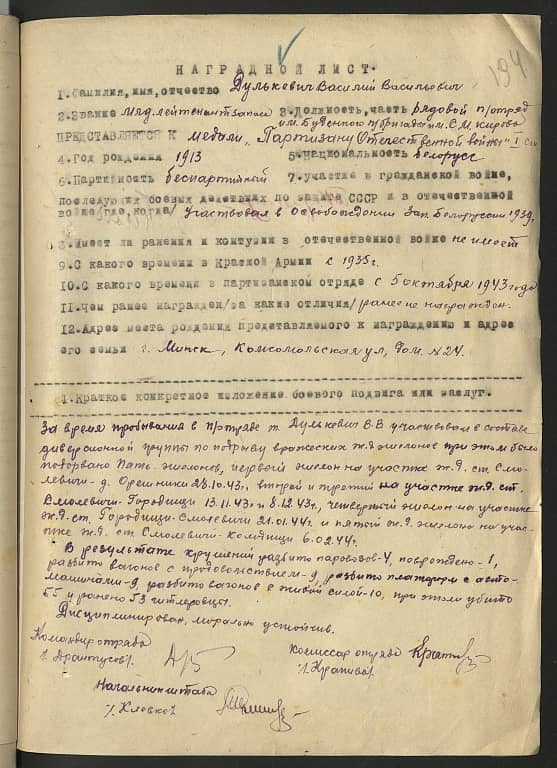 194
НАГРАДНОЙ ЛИСТ.
1. Фамилия, имя, отчество Дулькович Василий Васильевич
2. Звание Мл. лейтенант запаса 3. Должность, часть рядовой п/отряд
им. Буденного п/бригады им. С.М. Кирова
ПРЕДСТАВЛЯЕТСЯ К медали "Партизану Отечественной войны" I ст.
4. Год рождения 1913 5. Национальность белорусс
6. Партийность беспартийный 7. участие в гражданской войне,
последующих боевых действиях по защите СССР и в отечественной
войне/где, когда/ Участвовал в освобождении Зап. Белоруссии 1939.
8. Имеет ли ранения и контузии в отечественной войне не имеет
9. С какого времени в Красной Армии с 1935 г.
10. С какого времени в партизанском отряде с 5 октября 1943 года
11. Чем ранее награжден/за какие отличия/ ранее не награжден.
12. Адрес места рождения представляемого к награждению и адрес
его семьи г. Минск, Комсомольская ул, дом. №24.
1. Краткое конкретное изложение боевого подвига или заслуг.
За время пребывания в п/отряде т. Дулькевич В.В участвовал в составе
диверсионной группы по подрыву вражеских ж.д эшелонов при этом было
подорвано пять эшелонов, первый эшелон на участке ж.д. ст. Смо-
левичи - д. Орешники 28.10.43г, второй и третий на участке ж.д. ст.
Смолевичи-Городищи 13.11.43г и 8.12.43г, четвертый эшелон на участке
ж.д. ст. Городищи-Смолевичи 21.01.44г и пятый ж.д. эшелон на учас-
тке ж.д. ст. Смолевичи-Колодищи 6.02.44г.
В результате крушений разбито паровозов-4, повреждено-1,
разбито вагонов с продовольствием-9, разбито платформ с авто-
машинами-9, разбито вагонов с живой силой-10, при этом убито
55 и ранено 53 гитлеровцы.
Дисциплинирован, морально устойчив.
Командир отряда
Комиссар отряда
Начальник штаба